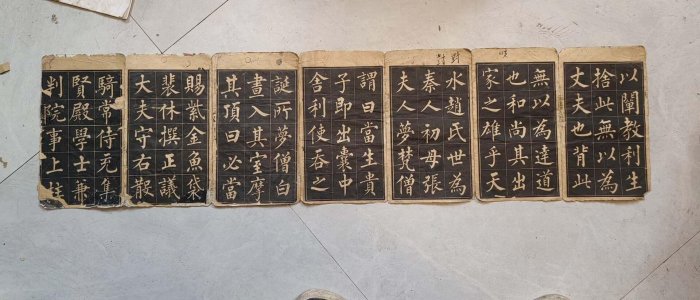 以闡教利生
捨此無以為
丈夫也背此
無以為達道
也和尚其出
家之雄乎天
水趙氏世為
秦人初母張
夫人夢梵僧
謂曰當生貴
子即出囊中
舍利使吞之
誕所夢僧白
晝入其室摩
其頂曰必當
賜紫金魚袋
裴休撰正議
大夫守右散
騎常侍充集
賢殿學士兼
判院事上柱